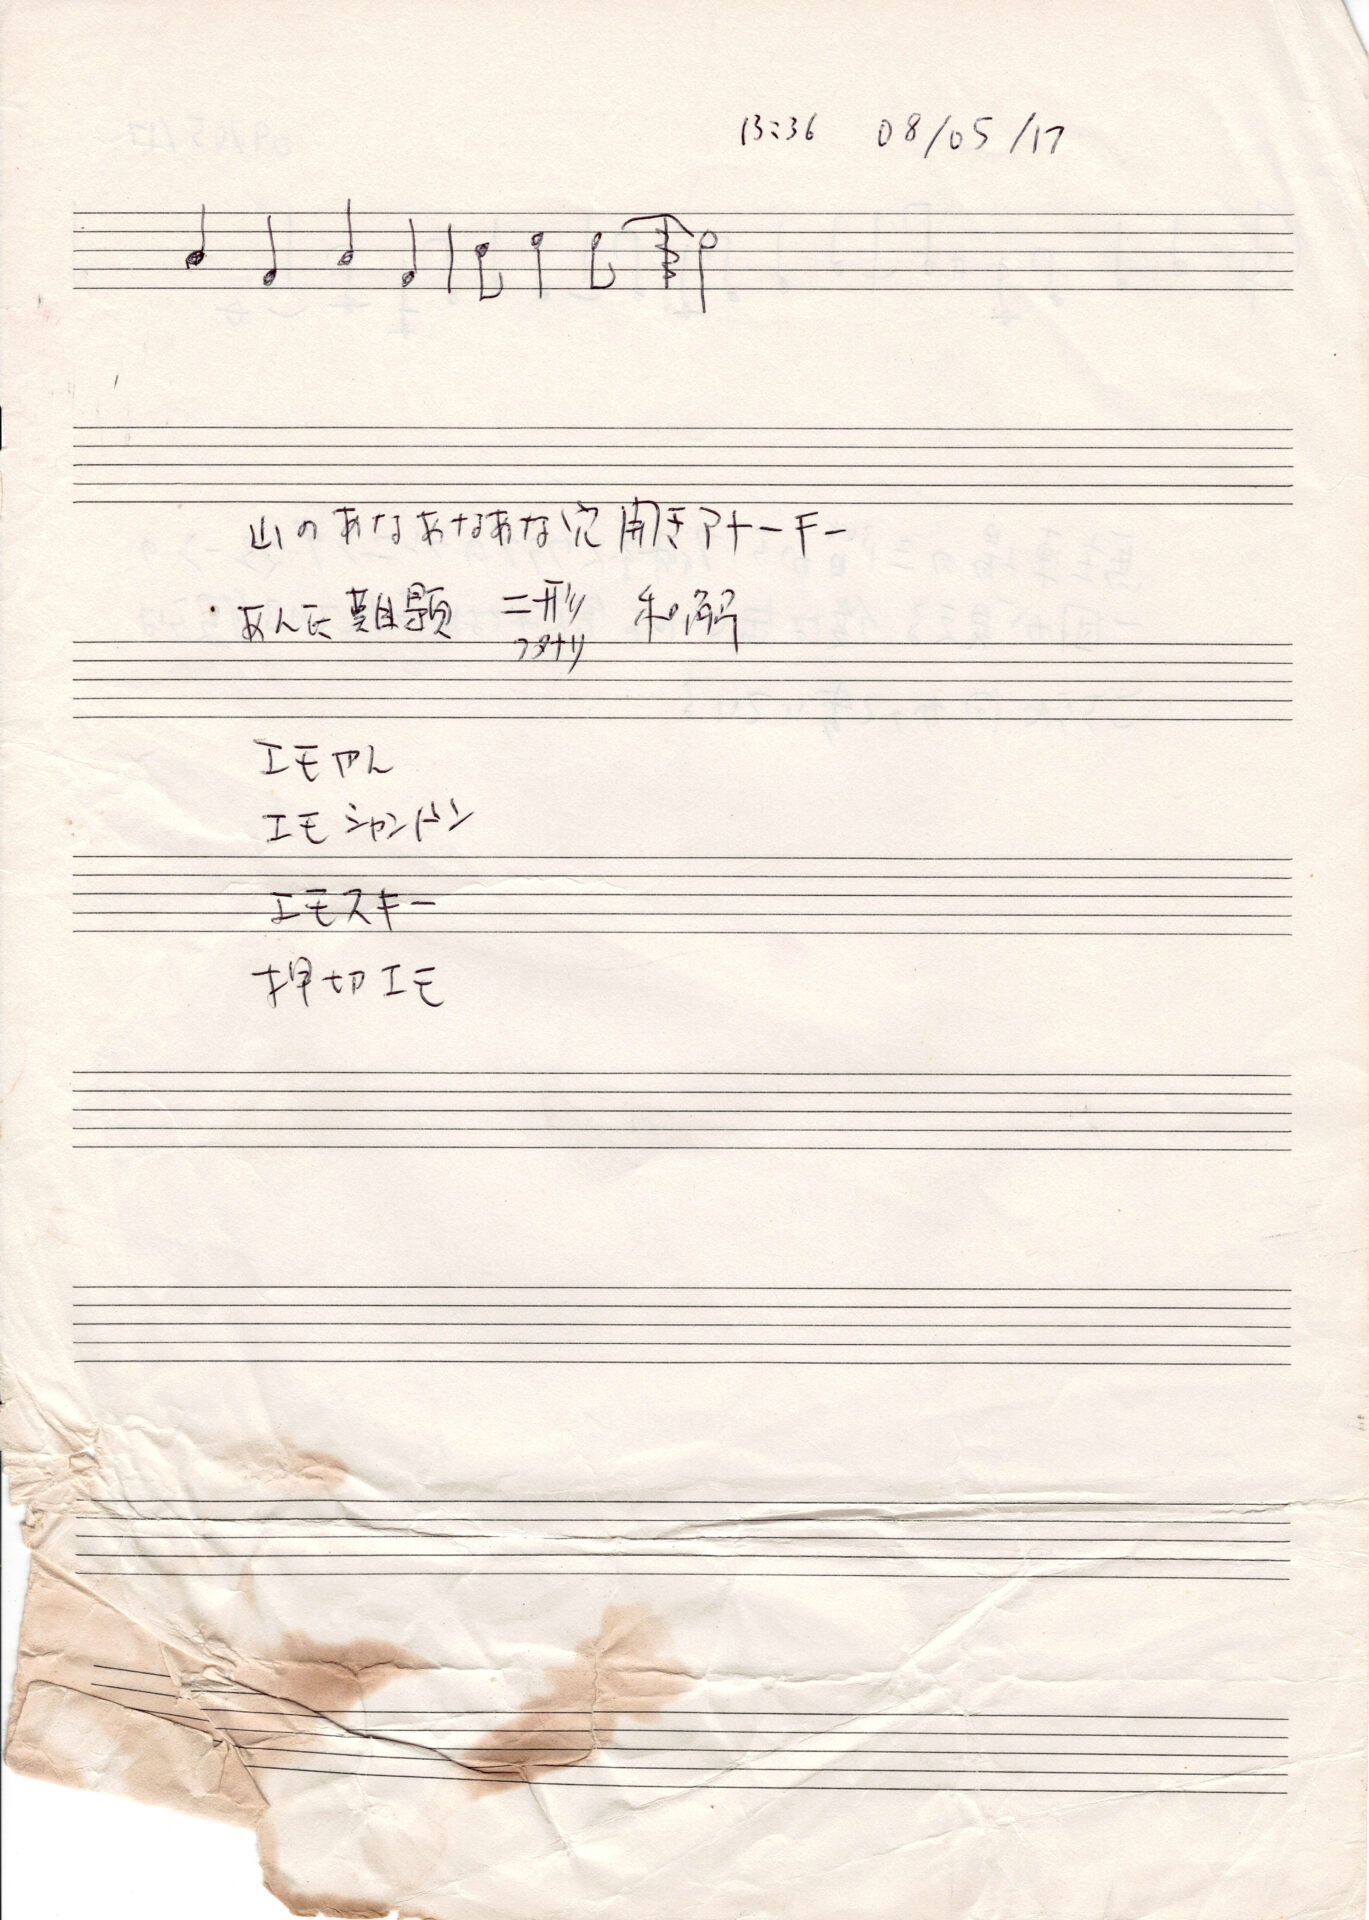 13:36 08/05/17
山のあなあなあな穴開きアナーキー
あんた難題 二形 和解
フタナリ
エモやん
エモシャンドン
エモスキー
押切エモ